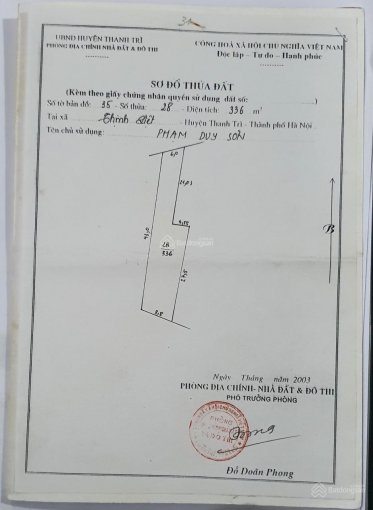 UBND HUYỆN THANH TRÌ
PHÒNG ĐỊA CHÍNH NHÀ ĐẤT & ĐÔ THỊ
CỘNG HOÀ XÃ HỘI CHỦ NGHĨA VIỆT NAM
Độc lập - Tự do - Hạnh phúc
SƠ ĐỒ THỬA ĐẤT
(Kèm theo giấy chứng nhận quyền sử dụng đất số: )
Số tờ bản đồ: 35 - Số thửa: 28 - Diện tích: 336 m²
Tại xã Thịnh Liệt - Huyện Thanh Trì - Thành phố Hà Nội.
Tên chủ sử dụng: PHẠM DUY SƠN
28
336
B
Batdongsan
Ngày Tháng năm 2003
PHÒNG ĐỊA CHÍNH- NHÀ ĐẤT & ĐÔ THỊ
PHÓ TRƯỞNG PHÒNG
Đỗ Doãn Phong
Batdongsan